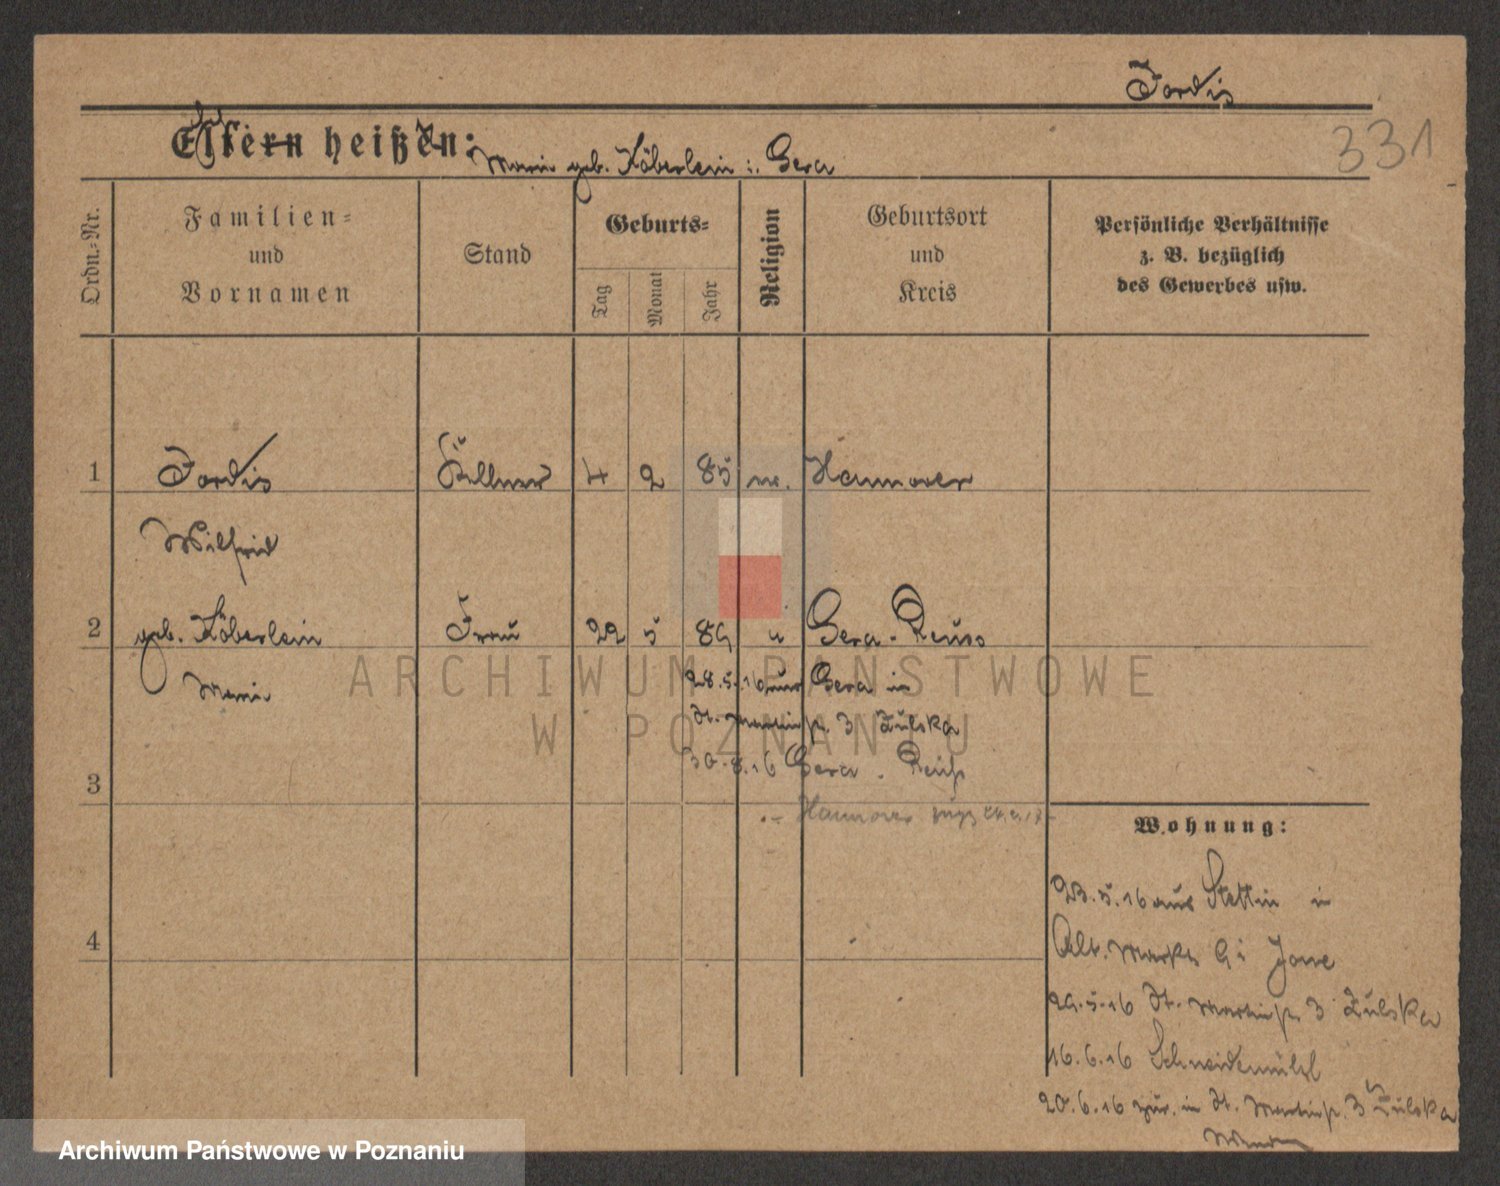 Jordis
331
Eltern heißen:
Marie geb. Köberlein i. Gera
Ordn.-Nr.
Familien-
und
Vornamen
Stand
Geburts-
Tag
Monat
Jahr
Religion
Geburtsort
und
Kreis
Persönliche Verhältnisse
z. B. bezüglich
des Gewerbes usw.
1 Jordis Kellner 4 2 85 Hannover
Wilfrid
2 geb. Köberlein Frau 22 5 89 " Gera-Reuss
Marie
28.5.16 aus Gera in
St. Martinstr. 3 Zulska
30.8.16 Gera. Reuß
3
Hannover
Wohnung:
23.5.16 aus Stettin in
Alt. Markt 9 i
4
29.5.16 St. Martinstr. 3 Zulska
16.6.16 Schneidemühl
20.6.16 zur. in St. Martinstr. 3 Zulska
ARCHIWUM PAŃSTWOWE
W POZNANIU
Archiwum Państwowe w Poznaniu